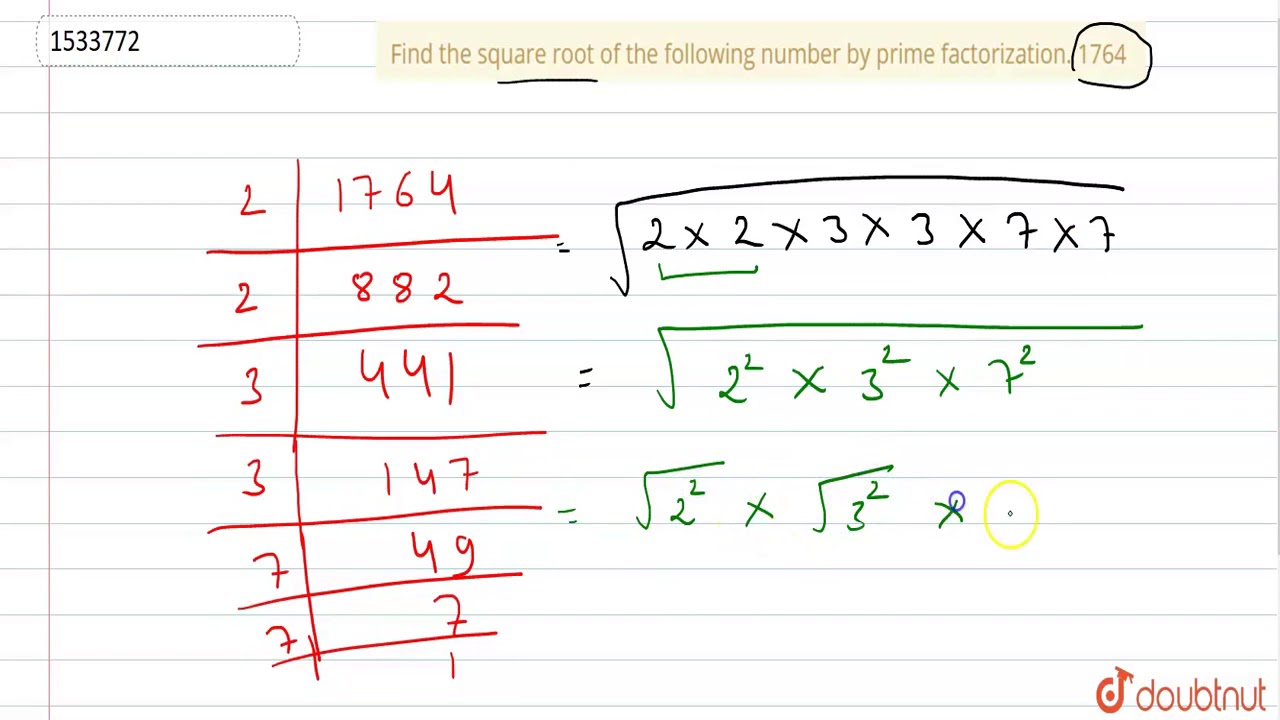 1533772
Find the square root of the following number by prime factorization. 1764
2 | 1764
2 | 882
3 | 441
3 | 147
7 | 49
7 | 7
1
= √2 × 2 × 3 × 3 × 7 × 7
= √2² × 3² × 7²
= √2² × √3² ×
doubtnut